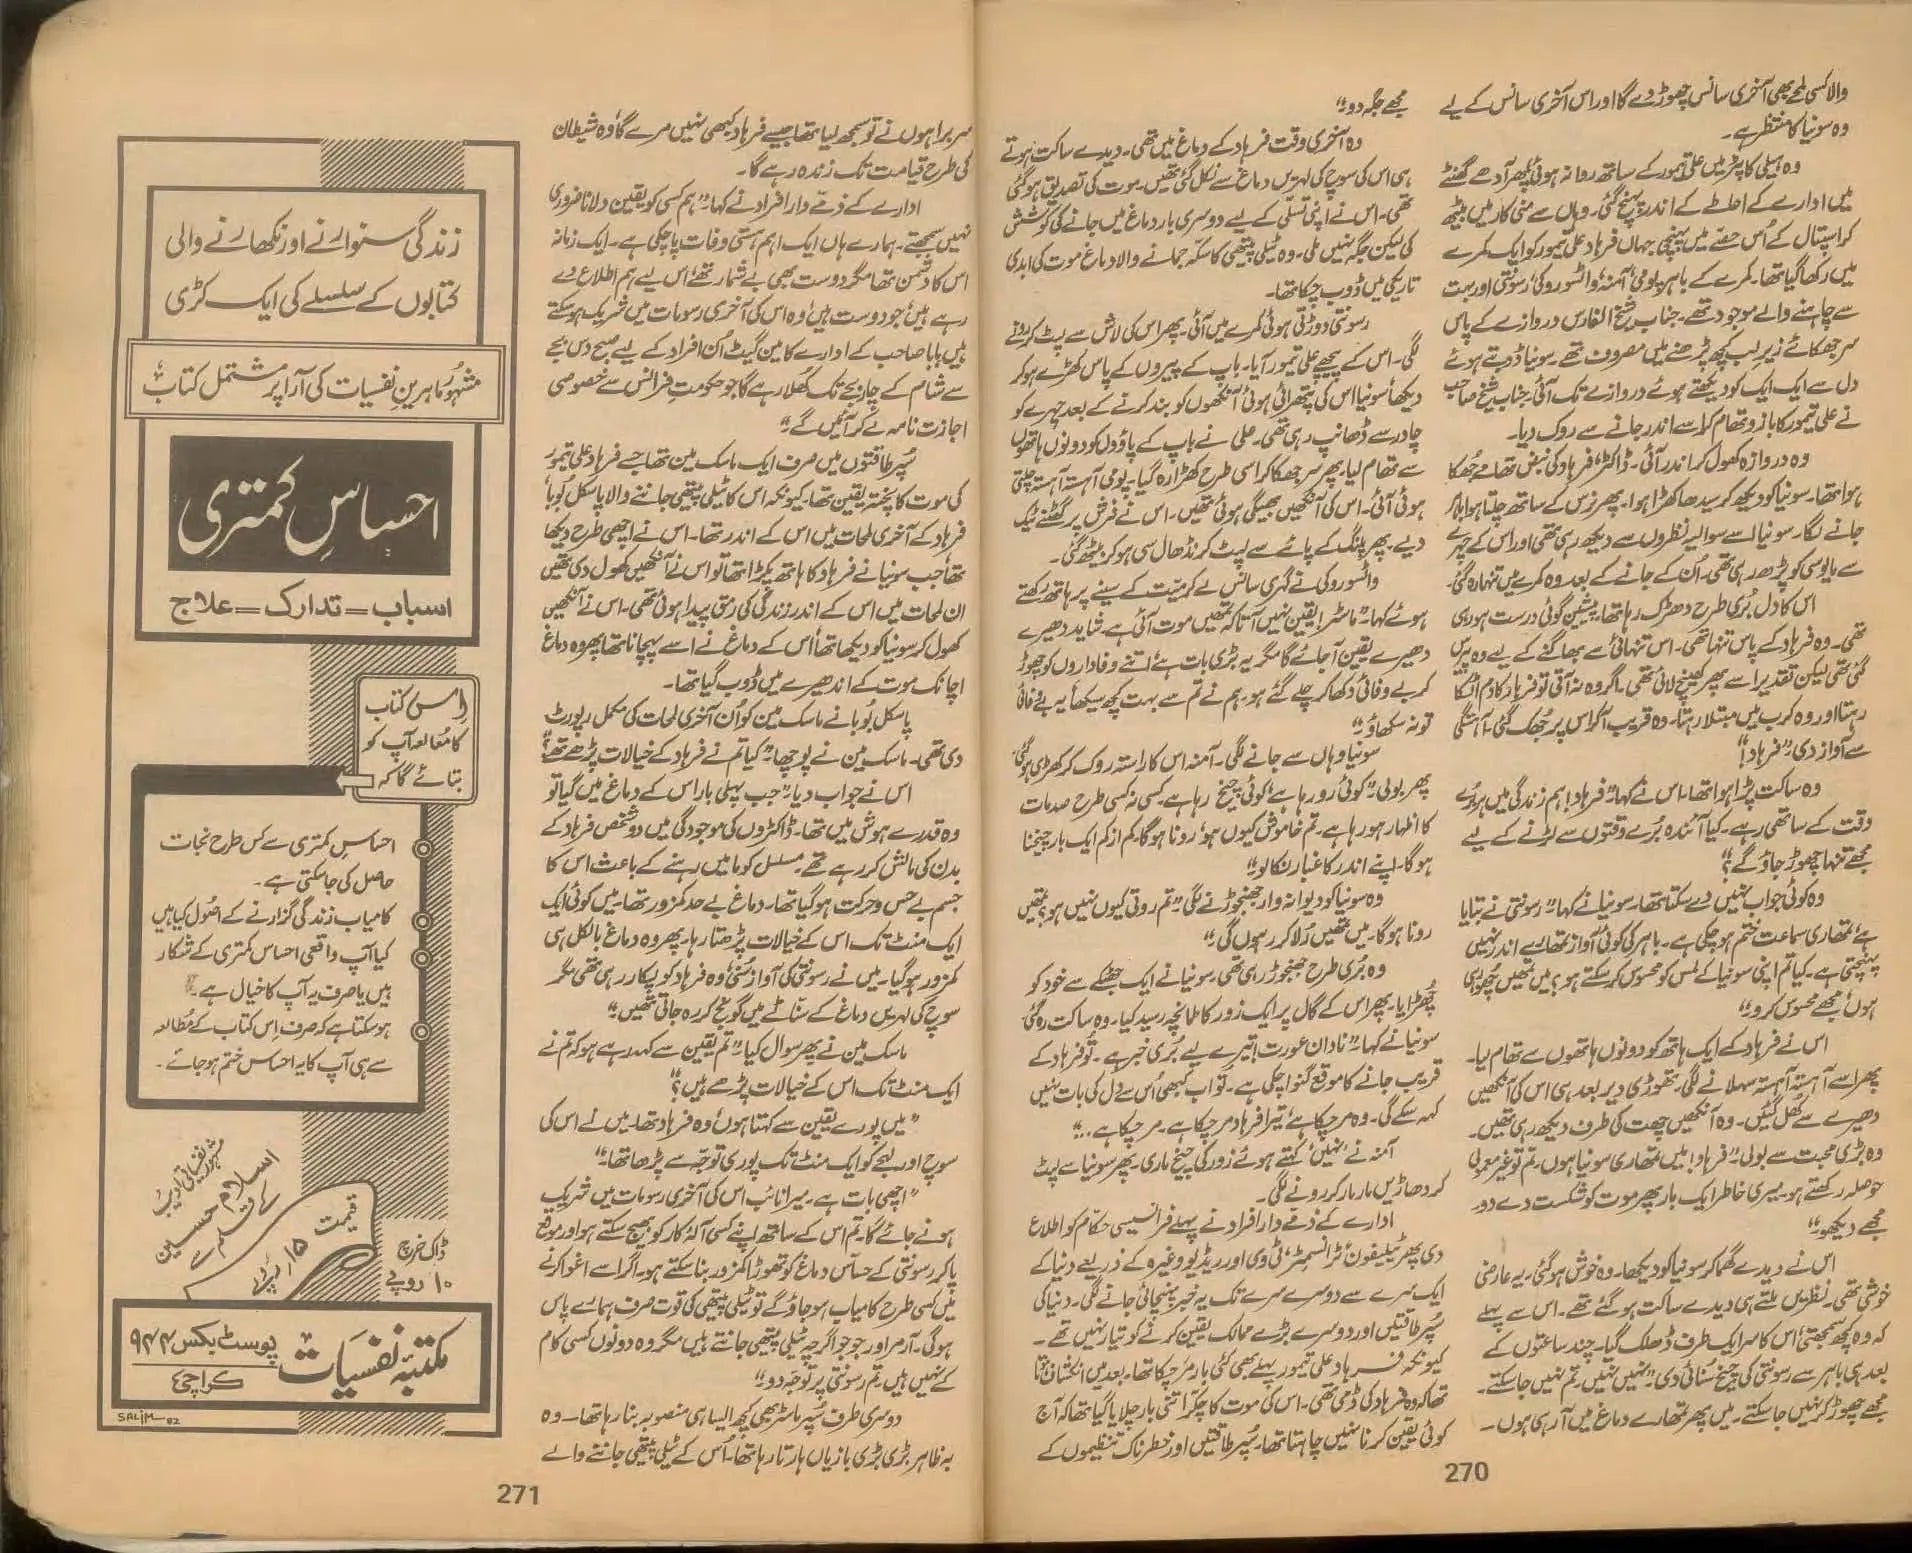 والا کسی لمحے بھی آخری سانس چھوڑ دے گا اور اس آخری سانس کے لیے
وہ سونیا کا منتظر ہے۔
وہ ہیلی کاپٹر میں علی تیمور کے ساتھ روانہ ہوئی پھر آدھے گھنٹے
میں ادارے کے احاطے کے اندر پہنچ گئی۔ وہاں سے منی کار میں بیٹھ
کر اسپتال کے اُس حصے میں پہنچی جہاں فرہاد علی تیمور کو ایک کمرے
میں رکھا گیا تھا۔ کمرے کے باہر پومی، آمنہ، والسوروکی، رسونتی اور بہت
سے چاہنے والے موجود تھے۔ جناب شیخ الفارس دروازے کے پاس
سر جھکائے زیرِ لب کچھ پڑھنے میں مصروف تھے۔ سونیا ڈوبتے ہوئے
دل سے ایک ایک کو دیکھتے ہوئے دروازے تک آئی۔ جناب شیخ صاحب
نے علی تیمور کا بازو تھام کر اسے اندر جانے سے روک دیا۔
وہ دروازہ کھول کر اندر آئی۔ ڈاکٹر، فرہاد کی نبض تھامے جُھکا
ہوا تھا۔ سونیا کو دیکھ کر سیدھا کھڑا ہوا۔ پھر نرس کے ساتھ چلتا ہوا باہر
جانے لگا۔ سونیا اسے سوالیہ نظروں سے دیکھ رہی تھی اور اس کے چہرے
سے مایوسی کو پڑھ رہی تھی۔ اُن کے جانے کے بعد وہ کمرے میں تنہا رہ گئی۔
اس کا دل بُری طرح دھڑک رہا تھا۔ پیشین گوئی درست ہو رہی
تھی۔ وہ فرہاد کے پاس تنہا تھی۔ اس تنہائی سے بھاگنے کے لیے وہ پیرس
گئی تھی لیکن تقدیر اسے پھر کھینچ لائی تھی۔ اگر وہ نہ آتی تو فرہاد کا دم اٹکا
رہتا اور وہ کرب میں مبتلا رہتا۔ وہ قریب آ کر اس پر جُھک گئی۔ آہستگی
سے آواز دی۔ "فرہاد!"
وہ ساکت پڑا ہوا تھا۔ اس نے کہا۔ "فرہاد! ہم زندگی میں ہر بُرے
وقت کے ساتھی رہے۔ کیا آئندہ بُرے وقتوں سے لڑنے کے لیے
مجھے تنہا چھوڑ جاؤ گے؟"
وہ کوئی جواب نہیں دے سکتا تھا۔ سونیا نے کہا۔ "رسونتی نے بتایا
ہے، تمھاری سماعت ختم ہو چکی ہے۔ باہر کی کوئی آواز تمھارے اندر نہیں
پہنچتی ہے۔ کیا تم اپنی سونیا کے لمس کو محسوس کر سکتے ہو؟ میں تمھیں چھو رہی
ہوں، مجھے محسوس کرو۔"
اس نے فرہاد کے ایک ہاتھ کو دونوں ہاتھوں سے تھام لیا۔
پھر اسے آہستہ آہستہ سہلانے لگی۔ تھوڑی دیر بعد ہی اس کی آنکھیں
دھیرے سے کُھل گئیں۔ وہ آنکھیں چھت کی طرف دیکھ رہی تھیں۔
وہ بڑی محبت سے بولی۔ "فرہاد! میں تمھاری سونیا ہوں۔ تم تو غیر معمولی
حوصلہ رکھتے ہو۔ میری خاطر ایک بار پھر موت کو شکست دے دو۔
مجھے دیکھو۔"
اس نے دیدے گھما کر سونیا کو دیکھا۔ وہ خوش ہو گئی۔ یہ عارضی
خوشی تھی۔ نظریں ملتے ہی دیدے ساکت ہو گئے تھے۔ اس سے پہلے
کہ وہ کچھ سمجھتی، اس کا سر ایک طرف ڈھلک گیا۔ چند ساعتوں کے
بعد ہی باہر سے رسونتی کی چیخ سُنائی دی۔ "نہیں نہیں۔ تم نہیں جا سکتے۔
مجھے چھوڑ کر نہیں جا سکتے۔ میں پھر تمھارے دماغ میں آ رہی ہوں۔
مجھے جگہ دو۔"
وہ آخری وقت فرہاد کے دماغ میں تھی۔ دیدے ساکت ہوتے
ہی اس کی سوچ کی لہریں دماغ سے نکل گئی تھیں۔ موت کی تصدیق ہو گئی
تھی۔ اس نے اپنی تسلی کے لیے دوسری بار دماغ میں جانے کی کوشش
کی لیکن جگہ نہیں ملی۔ وہ ٹیلی پیتھی کا سکہ جمانے والا دماغ موت کی ابدی
تاریکی میں ڈوب چکا تھا۔
رسونتی دوڑتی ہوئی کمرے میں آئی۔ پھر اس کی لاش سے لپٹ کر رونے
لگی۔ اس کے پیچھے علی تیمور آیا۔ باپ کے پیروں کے پاس کھڑے ہو کر
دیکھا، سونیا اس کی پتھرائی ہوئی آنکھوں کو بند کرنے کے بعد چہرے کو
چادر سے ڈھانپ رہی تھی۔ علی نے باپ کے پاؤں کو دونوں ہاتھوں
سے تھام لیا، پھر سر جھکا کر اسی طرح کھڑا رہ گیا۔ پومی آہستہ آہستہ چلتی
ہوئی آئی۔ اس کی آنکھیں بھیگی ہوئی تھیں۔ اس نے فرش پر گھٹنے ٹیک
دیے۔ پھر پلنگ کے پائے سے لپٹ کر نڈھال سی ہو کر بیٹھ گئی۔
والسوروکی نے گہری سانس لے کر میّت کے سینے پر ہاتھ رکھتے
ہوئے کہا۔ "ماسٹر! یقین نہیں آتا کہ تمھیں موت آئی ہے۔ شاید دھیرے
دھیرے یقین آ جائے گا مگر یہ بڑی بات ہے، اتنے وفاداروں کو چھوڑ
کر بے وفائی دکھا کر چلے گئے ہو۔ ہم نے تم سے بہت کچھ سیکھا، یہ بے وفائی
تو نہ سکھاؤ۔"
سونیا وہاں سے جانے لگی۔ آمنہ اس کا راستہ روک کر کھڑی ہو گئی
پھر بولی۔ "کوئی رو رہا ہے، کوئی چیخ رہا ہے۔ کسی نہ کسی طرح صدمات
کا اظہار ہو رہا ہے۔ تم خاموش کیوں ہو؟ رونا ہوگا۔ کم از کم ایک بار چیخنا
ہوگا۔ اپنے اندر کا غبار نکالو۔"
وہ سونیا کو دیوانہ وار جھنجوڑنے لگی۔ "تم روتی کیوں نہیں ہو؟ تمھیں
رونا ہوگا۔ میں تمھیں رُلا کر رہوں گی۔"
وہ بُری طرح جھنجوڑ رہی تھی۔ سونیا نے ایک جھٹکے سے خود کو
چُھڑایا۔ پھر اس کے گال پر ایک زور کا طمانچہ رسید کیا۔ وہ ساکت رہ گئی۔
سونیا نے کہا۔ "نادان عورت! تیرے لیے بُری خبر ہے۔ تُو فرہاد کے
قریب جانے کا موقع گنوا چکی ہے۔ تُو اب کبھی اُس سے دل کی بات نہیں
کہہ سکے گی۔ وہ مر چکا ہے، تیرا فرہاد مر چکا ہے۔ مر چکا ہے..."
آمنہ نے "نہیں" کہتے ہوئے زور کی چیخ ماری۔ پھر سونیا سے لپٹ
کر دھاڑیں مار مار کر رونے لگی۔
ادارے کے ذمّے دار افراد نے پہلے فرانسیسی حکام کو اطلاع
دی پھر ٹیلیفون، ٹرانسمیٹر، ٹی وی اور ریڈیو وغیرہ کے ذریعے دنیا کے
ایک سرے سے دوسرے سرے تک یہ خبر پہنچائی جانے لگی۔ دنیا کی
سُپر طاقتیں اور دوسرے بڑے ممالک یقین کرنے کو تیار نہیں تھے۔
کیونکہ فرہاد علی تیمور پہلے بھی کئی بار مر چکا تھا۔ بعد میں انکشاف ہوتا
تھا کہ وہ فرہاد کی ڈمی تھی۔ اس کی موت کا چکر اتنی بار چلایا گیا تھا کہ آج
کوئی یقین کرنا نہیں چاہتا تھا۔ سُپر طاقتیں اور خطرناک تنظیموں کے
270
سربراہوں نے تو سمجھ لیا تھا جیسے فرہاد کبھی نہیں مرے گا، وہ شیطان
کی طرح قیامت تک زندہ رہے گا۔
ادارے کے ذمّے دار افراد نے کہا۔ "ہم کسی کو یقین دلانا ضروری
نہیں سمجھتے۔ ہمارے ہاں ایک اہم ہستی وفات پا چکی ہے۔ ایک زمانہ
اس کا دشمن تھا مگر دوست بھی بے شمار تھے، اس لیے ہم اطلاع دے
رہے ہیں، جو دوست ہیں، وہ اس کی آخری رسومات میں شریک ہو سکتے
ہیں۔ بابا صاحب کے ادارے کا مین گیٹ اُن افراد کے لیے صبح دس بجے
سے شام کے چار بجے تک کُھلا رہے گا جو حکومتِ فرانس سے خصوصی
اجازت نامہ لے کر آئیں گے۔"
سُپر طاقتوں میں صرف ایک ماسک مین تھا جسے فرہاد علی تیمور
کی موت کا پختہ یقین تھا۔ کیونکہ اس کا ٹیلی پیتھی جاننے والا پاسکل بُوبا
فرہاد کے آخری لمحات میں اس کے اندر تھا۔ اس نے اچھی طرح دیکھا
تھا، جب سونیا نے فرہاد کا ہاتھ پکڑا تھا تو اس نے آنکھیں کھول دی تھیں
ان لمحات میں اس کے اندر زندگی کی رمق پیدا ہوئی تھی۔ اس نے آنکھیں
کھول کر سونیا کو دیکھا تھا، اُس کے دماغ نے اسے پہچانا تھا، پھر وہ دماغ
اچانک موت کے اندھیرے میں ڈوب گیا تھا۔
پاسکل بُوبا نے ماسک مین کو اُن آخری لمحات کی مکمل رپورٹ
دی تھی۔ ماسک مین نے پوچھا۔ "کیا تم نے فرہاد کے خیالات پڑھے تھے؟"
اس نے جواب دیا۔ "جب پہلی بار اس کے دماغ میں گیا تو
وہ قدرے ہوش میں تھا۔ ڈاکٹروں کی موجودگی میں دو شخص فرہاد کے
بدن کی مالش کر رہے تھے۔ مسلسل کوما میں رہنے کے باعث اس کا
جسم بے حس و حرکت ہو گیا تھا۔ دماغ بے حد کمزور تھا۔ میں کوئی ایک
ایک منٹ تک اس کے خیالات پڑھتا رہا۔ پھر وہ دماغ بالکل ہی
کمزور ہو گیا۔ میں نے رسونتی کی آواز سُنی، وہ فرہاد کو پکار رہی تھی مگر
سوچ کی لہریں دماغ کے سناٹے میں گونج کر رہ جاتی تھیں۔"
ماسک مین نے پھر سوال کیا۔ "تم یقین سے کہہ رہے ہو کہ تم نے
ایک منٹ تک اس کے خیالات پڑھے ہیں؟"
"میں پورے یقین سے کہتا ہوں، وہ فرہاد تھا۔ میں نے اس کی
سوچ اور لہجے کو ایک منٹ تک پوری توجہ سے پڑھا تھا۔"
"اچھی بات ہے۔ میرا نائب اس کی آخری رسومات میں شریک
ہونے جائے گا۔ تم اس کے ساتھ اپنے کسی آلۂ کار کو بھیج سکتے ہو اور موقع
پا کر رسونتی کے حساس دماغ کو تھوڑا کمزور بنا سکتے ہو۔ اگر اسے اغوا کرنے
میں کسی طرح کامیاب ہو جاؤ گے تو ٹیلی پیتھی کی قوت صرف ہمارے پاس
ہوگی۔ آرمر اور جوجو اگرچہ ٹیلی پیتھی جانتے ہیں مگر وہ دونوں کسی کام
کے نہیں ہیں۔ تم رسونتی پر توجہ دو۔"
دوسری طرف سُپر ماسٹر بھی کچھ ایسا ہی منصوبہ بنا رہا تھا۔ وہ
بہ ظاہر بڑی بڑی بازیاں ہارتا رہا تھا۔ اُس کے ٹیلی پیتھی جاننے والے
زندگی سنوارنے اور نکھارنے والی
کتابوں کے سلسلے کی ایک کڑی
مشہور ماہرینِ نفسیات کی آرا پر مشتمل کتاب
احساسِ کمتری
اسباب = تدارک = علاج
اِس کتاب
کا مُطالعہ آپ کو
بتائے گا کہ
احساسِ کمتری سے کس طرح نجات
حاصل کی جا سکتی ہے۔
کامیاب زندگی گزارنے کے اصُول کیا ہیں
کیا آپ واقعی احساسِ کمتری کے شکار
ہیں یا صرف یہ آپ کا خیال ہے۔
ہو سکتا ہے کہ صرف اِس کتاب کے مُطالعہ
سے ہی آپ کا یہ احساس ختم ہو جائے۔
مشہور نفسیاتی ادیب
اسلام حسین
کے قلم سے
قیمت
۱۵ روپے
ڈاک خرچ
۱۰ روپے
مکتبۂ نفسیات
پوسٹ بکس ۹۴۴
کراچی ۱
SALIM-82
271